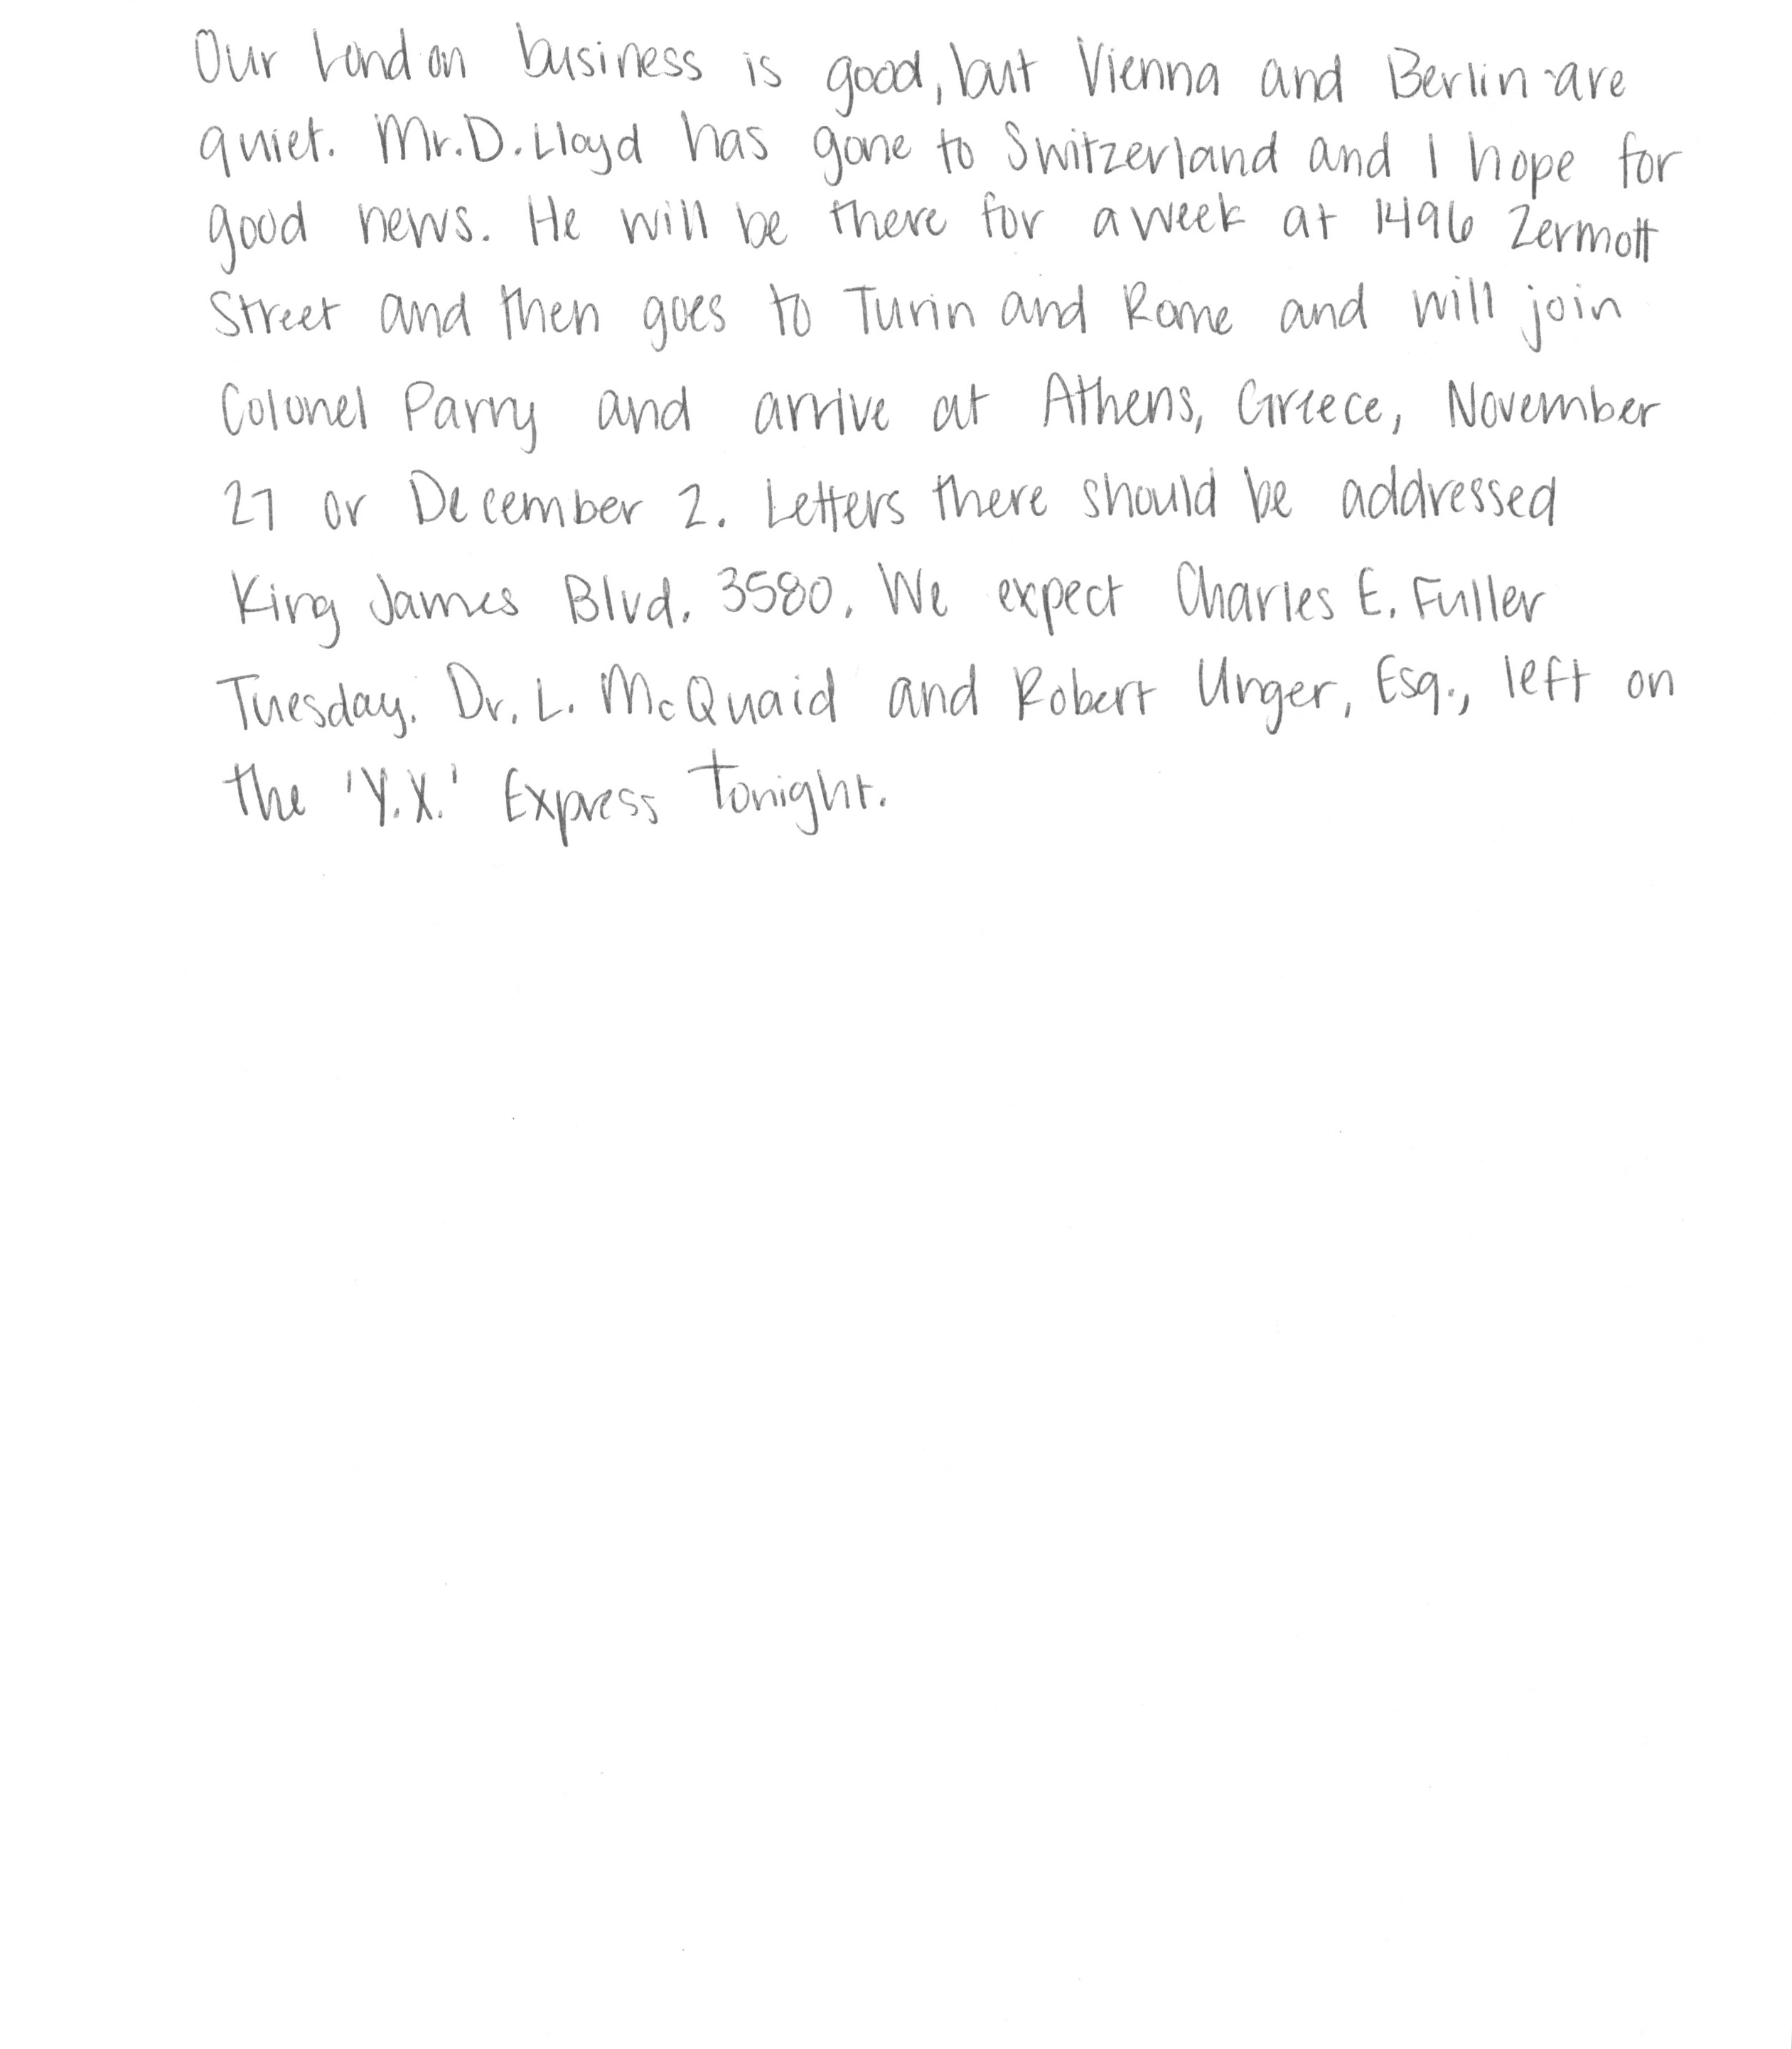 Our London business is good, but Vienna and Berlin are
quiet. Mr. D. Lloyd has gone to Switzerland and I hope for
good news. He will be there for a week at 1496 Zermott
Street and then goes to Turin and Rome and will join
Colonel Parry and arrive at Athens, Greece, November
27 or December 2. Letters there should be addressed
King James Blvd. 3580. We expect Charles E. Fuller
Tuesday. Dr. L. McQuaid and Robert Unger, Esq., left on
the 'Y.X.' Express tonight.